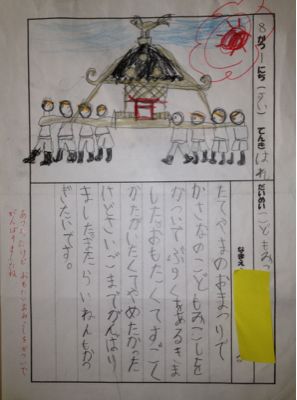 8がつ1にち(すい)てんきはれ
だいめいこどもみこ
なまえ
たてやまのおまつりで
かさなのこどもみこしを
かついでぶらくをあるきま
した。おもたくてすごく
かたがいたくてやめたかった
けどさいごまでがんばり
ました。またらいねんもかつ
ぎたいです。
あついなか おもたいおみこしをかついで
がんばりましたね